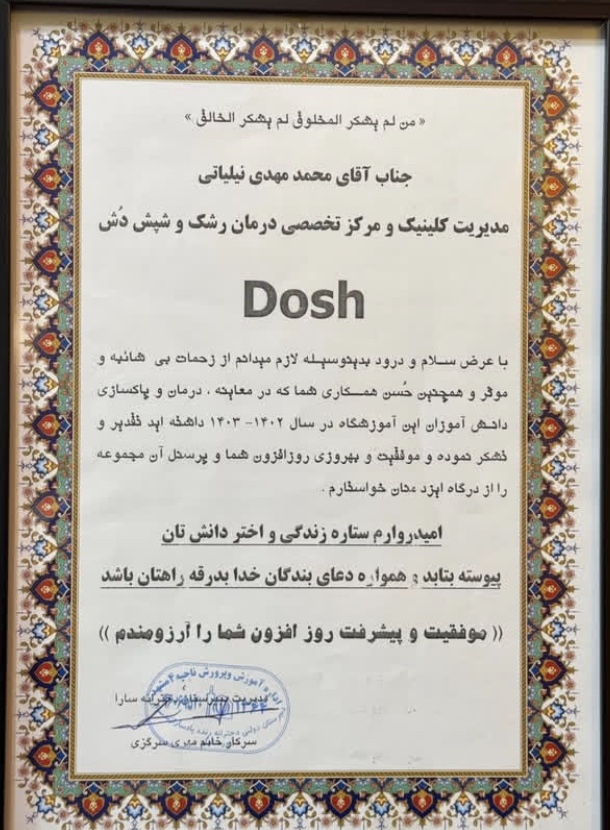 « من لم یشکر المخلوق لم یشکر الخالق »
جناب آقای محمد مهدی نیلیاتی
مدیریت کلینیک و مرکز تخصصی درمان رشک و شپش دُش
Dosh
با عرض سلام و درود بدینوسیله لازم میدانم از زحمات بی شائبه و
موثر و همچنین حُسن همکاری شما که در معاینه ، درمان و پاکسازی
دانش آموزان این آموزشگاه در سال ۱۴۰۲- ۱۴۰۳ داشته اید تقدیر و
تشکر نموده و موفقیت و بهروزی روزافزون شما و پرسنل آن مجموعه
را از درگاه ایزد منان خواستارم .
امیدروارم ستاره زندگی و اختر دانش تان
پیوسته بتابد و همواره دعای بندگان خدا بدرقه راهتان باشد
(( موفقیت و پیشرفت روز افزون شما را آرزومندم ))
اداره آموزش وپرورش ناحیه ۴
مدیریت دبیرستان دخترانه سارا
سرکار خانم مهری سرگزی